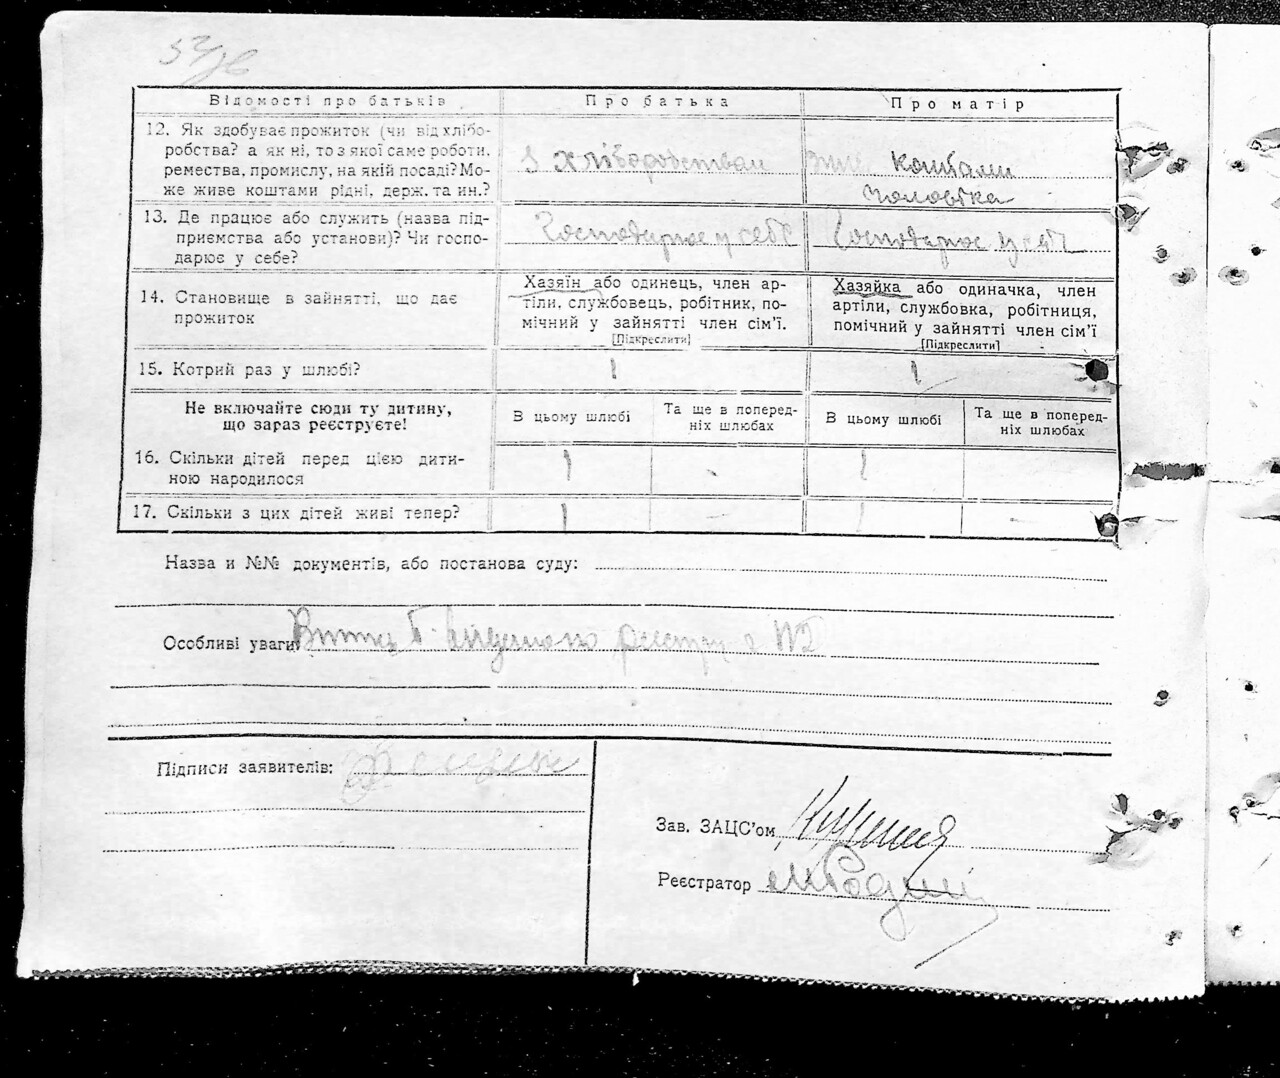 52/зв
Відомості про батьків
Про батька
Про матір
12. Як здобуває прожиток (чи від хлібо-
робства? а як ні, то з якої саме роботи,
ремества, промислу, на якій посаді? Мо-
же живе коштами рідні, держ. та ин.?
з хліборобства
живе коштами
чоловіка
13. Де працює або служить (назва під-
приємства або установи)? Чи госпо-
дарює у себе?
Господарює у себе
Господарює у себе
14. Становище в зайнятті, що дає
прожиток
Хазяїн або одинець, член ар-
тіли, службовець, робітник, по-
мічний у зайнятті член сім'ї.
[Підкреслити]
Хазяйка або одиначка, член
артіли, службовка, робітниця,
помічний у зайнятті член сім'ї
[Підкреслити]
15. Котрий раз у шлюбі?
1
1
Не включайте сюди ту дитину,
що зараз реєструєте!
В цьому шлюбі
Та ще в поперед-
ніх шлюбах
В цьому шлюбі
Та ще в поперед-
ніх шлюбах
16. Скільки дітей перед цією дити-
ною народилося
1
-
1
17. Скільки з цих дітей живі тепер?
1
-
1
-
Назва и №№ документів, або постанова суду:
Особливі уваги:
реєстру
Підписи заявителів:
Зав. ЗАЦС'ом
Реєстратор